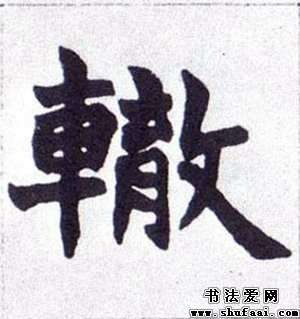 轍
书法爱网
www.shufaai.com